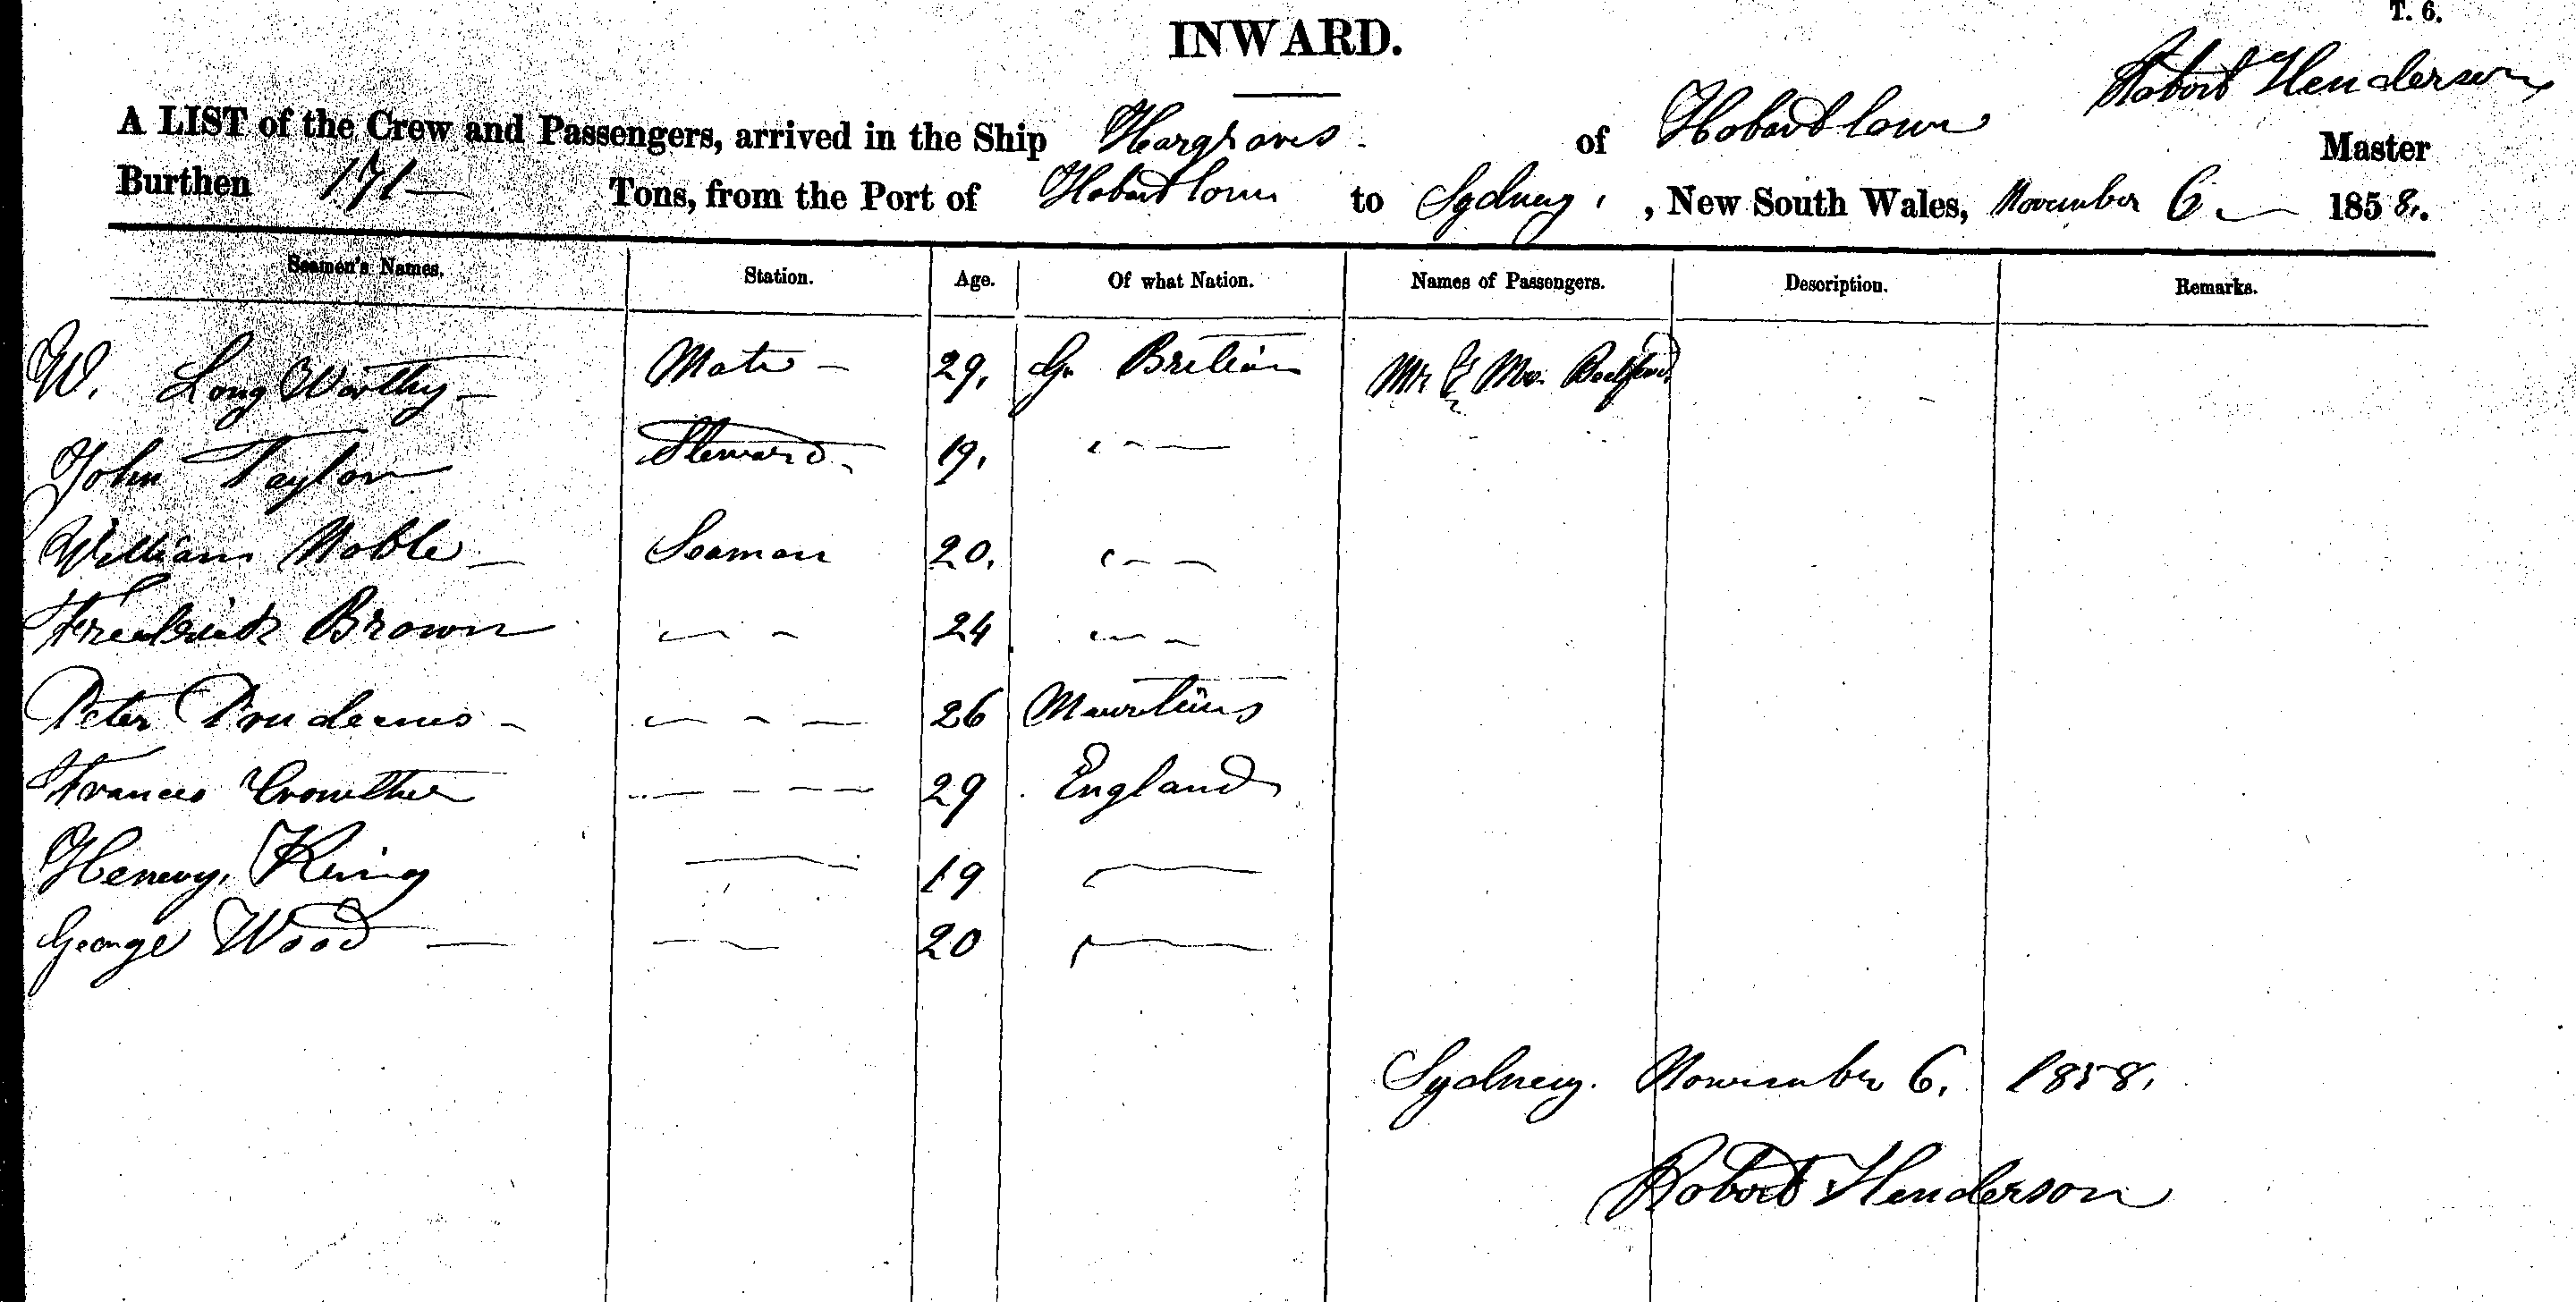 T. 6.
INWARD.
A LIST of the Crew and Passengers, arrived in the Ship Hargraves of Hobart Town Robert Henderson Master
Burthen 171 — Tons, from the Port of Hobart Town to Sydney, New South Wales, November 6 — 1858.
Seamen's Names. Station. Age. Of what Nation. Names of Passengers. Description. Remarks.
W. Long Worthy — Mate — 29. Gr Britian Mr & Mrs. Bedford
John Taylor Steward 19. " — —
William Noble — Seaman 20. " — —
Frederick Brown — — 24 " — —
Peter — — — 26 Mauritius
Frances Crowther — — — — 29 England
Henery King — 19 —
George Wood — — — 20 —
Sydney. November 6. 1858.
Robert Henderson